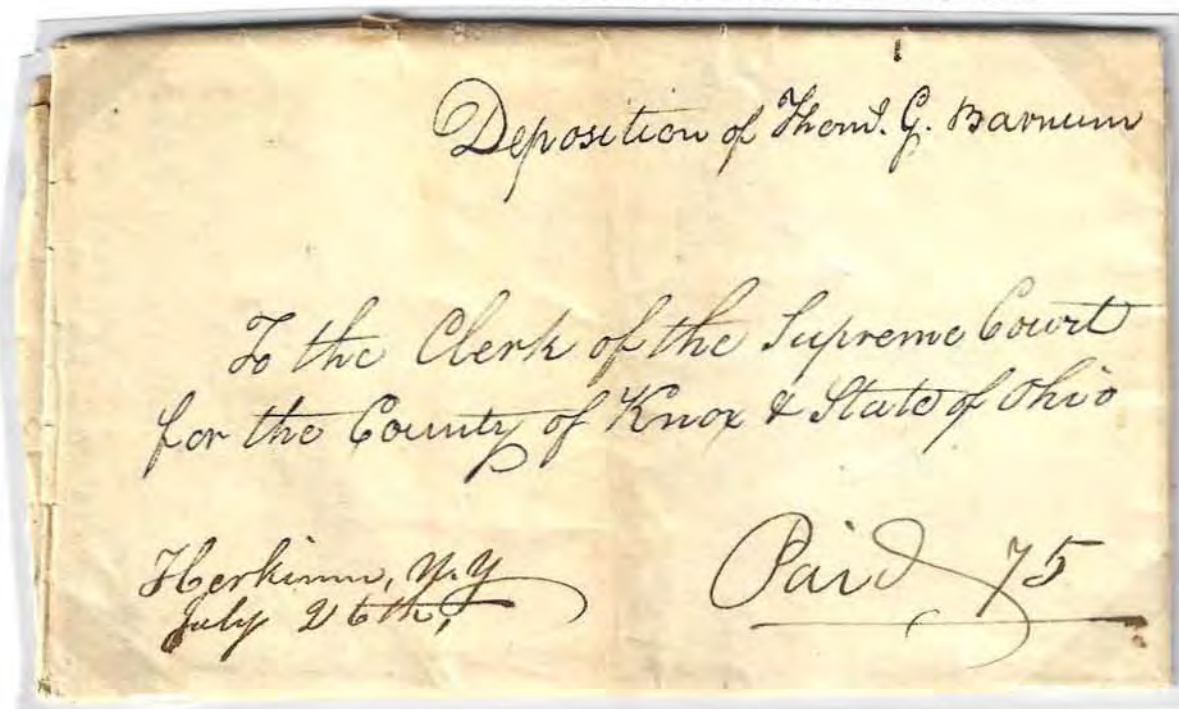 Deposition of Thoms. G. Barnum
To the Clerk of the Supreme Court
for the County of Knox & State of Ohio
Herkimer, N.Y
July 26th,
Paid 75